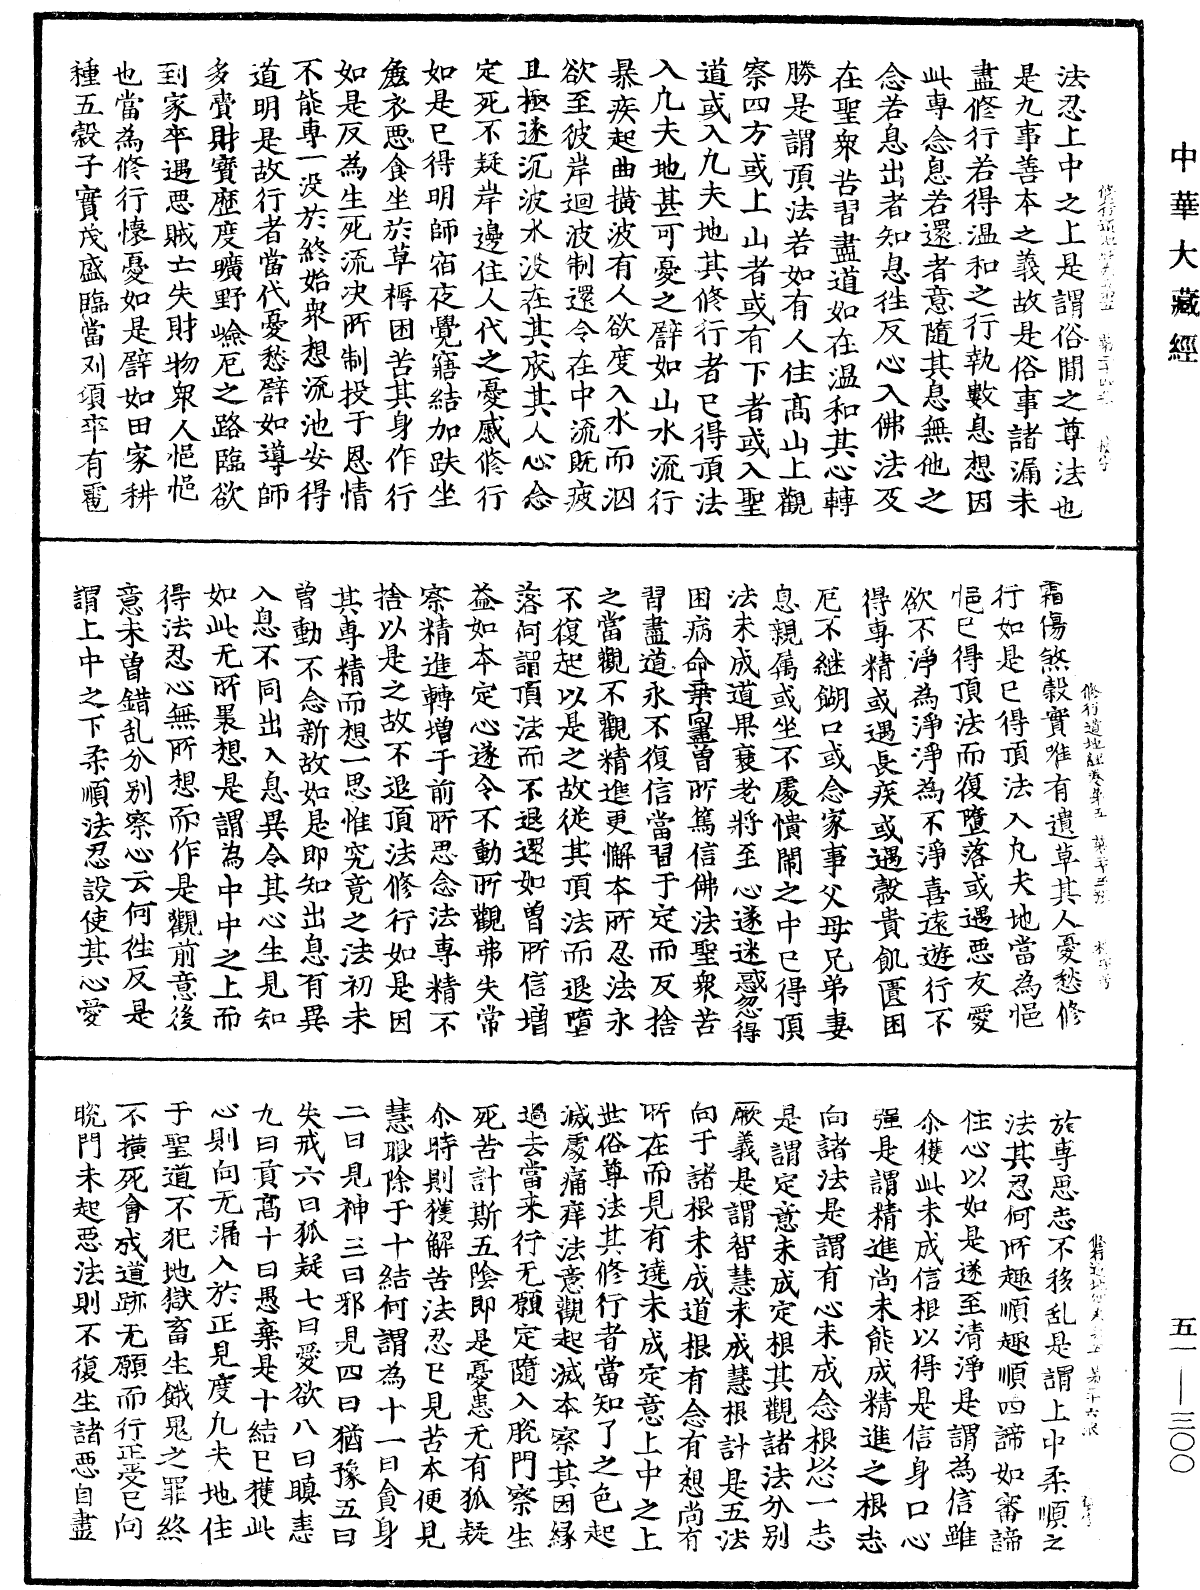 中華大藏經
法忍上中之上是謂俗閒之尊法也
是九事善本之義故是俗事諸漏未
盡修行若得溫和之行執數息想因
此專念息若還者意隨其息無他之
念若息出者知息徃反心入佛法及
在聖衆苦習盡道如在溫和其心轉
勝是謂頂法若如有人住高山上觀
察四方或上山者或有下者或入聖
道或入凡夫地其修行者已得頂法
入凡夫地甚可憂之譬如山水流行
暴疾起曲橫波有人欲度入水而泅
欲至彼岸迴波制還令在中流既疲
且極遂沉波水没在其底其人心念
定死不疑岸邊住人代之憂慼修行
如是已得明師宿夜覺寤結加趺坐
麁衣惡食坐於草褥困苦其身作行
如是反為生死流决所制投于恩情
不能專一没於終始衆想流池安得
道明是故行者當代憂愁譬如導師
多賷財寶歷度曠野嶮厄之路臨欲
到家卒遇惡賊亡失財物衆人悒悒
也當為修行懷憂如是譬如田家耕
種五穀子實茂盛臨當刈頃卒有雹
霜傷煞穀實唯有遺草其人憂愁修
行如是已得頂法入凡夫地當為悒
悒已得頂法而復墮落或遇惡友愛
欲不淨為淨淨為不淨喜遠遊行不
得專精或遇長疾或遇穀貴飢匱困
厄不継餬口或念家事父母兄弟妻
息親属或坐不處憒閙之中已得頂
法未成道果衰老將至心遂迷惑忽得
困病命棄向盡曽所篤信佛法聖衆苦
習盡道永不復信當習于定而反捨
之當觀不觀精進更懈本所忍法永
不復起以是之故從其頂法而退墮
落何謂頂法而不退還如曽所信增
益如本定心遂令不動所觀弗失常
察精進轉增于前所思念法專精不
捨以是之故不退頂法修行如是因
其專精而想一思惟究竟之法初未
曽動不念新故如是即知出息有異
入息不同出入息異令其心生見知
如此无所畏想是謂為中中之上而
得法忍心無所想而作是觀前意後
意未曽錯乱分别察心云何徃反是
謂上中之下柔順法忍設使其心愛
於專思志不移乱是謂上中柔順之
法其忍何所趣順趣順四諦如審諦
住心以如是遂至清淨是謂為信雖
尒獲此未成信根以得是信身口心
强是謂精進尚未能成精進之根志
向諸法是謂有心未成念根㳂一志
是謂定意未成定根其觀諸法分别
厥義是謂智慧未成慧根計是五法
向于諸根未成道根有念有想尚有
所在而見有遶未成定意上中之上
世俗尊法其修行者當知了之色起
滅處痛痒法意觀起滅本察其因縁
過去當来行无願定隨入脫門察生
死苦計斯五陰即是憂患无有狐疑
尒時則獲解苦法忍已見苦本便見
慧眼除于十結何謂為十一曰貪身
二曰見神三曰邪見四曰猶豫五曰
失戒六曰狐疑七曰愛欲八曰瞋恚
九曰貢高十曰愚棄是十結已獲此
心則向无漏入於正見度凡夫地住
于聖道不犯地獄畜生餓鬼之罪終
不橫死會成道跡无願而行正受已向
脫門未起惡法則不復生諸惡自盡
五一—三〇〇